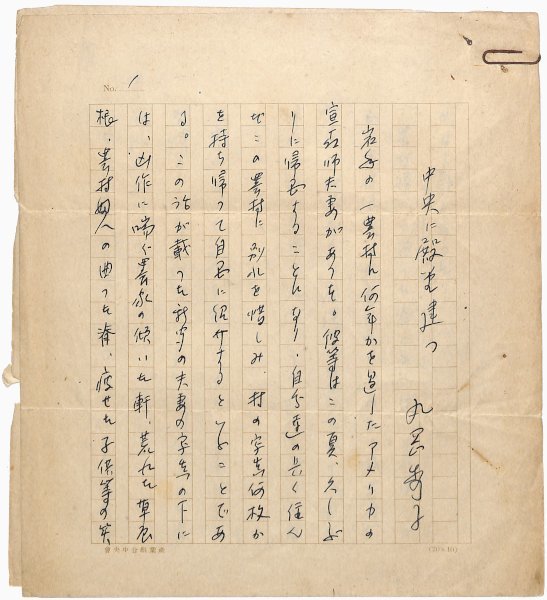 No. 1
中央に殿堂建つ
丸岡秀子
岩手の一農村に何年かを過したアメリカの
宣教師夫妻があつた。彼等はこの夏、久しぶ
りに帰国することになり、自分達の長く住ん
だこの農村に別れを惜しみ、村の写真何枚か
を持ち帰つて自国に紹介するといふことであ
る。この話が載つた新聞の夫妻の写真の下に
は、凶作に喘ぐ農家の傾いた軒、荒れた草屋
根、農村婦人の曲つた脊、痩せた子供等の笑
產業組合中央會
(20×10)